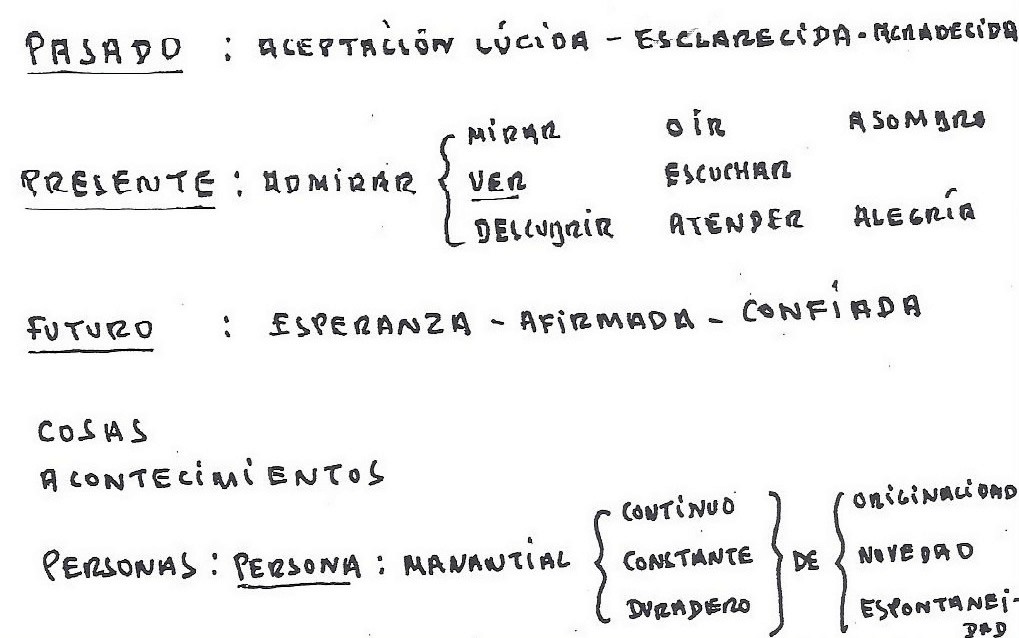 PASADO : ACEPTACIÓN LÚCIDA - ESCLARECIDA - AGRADECIDA
MIRAR OÍR ASOMBRO
PRESENTE : ADMIRAR { VER ESCUCHAR
DESCUBRIR ATENDER ALEGRÍA
FUTURO : ESPERANZA - AFIRMADA - CONFÍADA
COSAS
ACONTECIMIENTOS
CONTÍNUO ORIGINALIDAD
PERSONAS : PERSONA : MANANTIAL { CONSTANTE } DE { NOVEDAD
DURADERO ESPONTANEI-
DAD